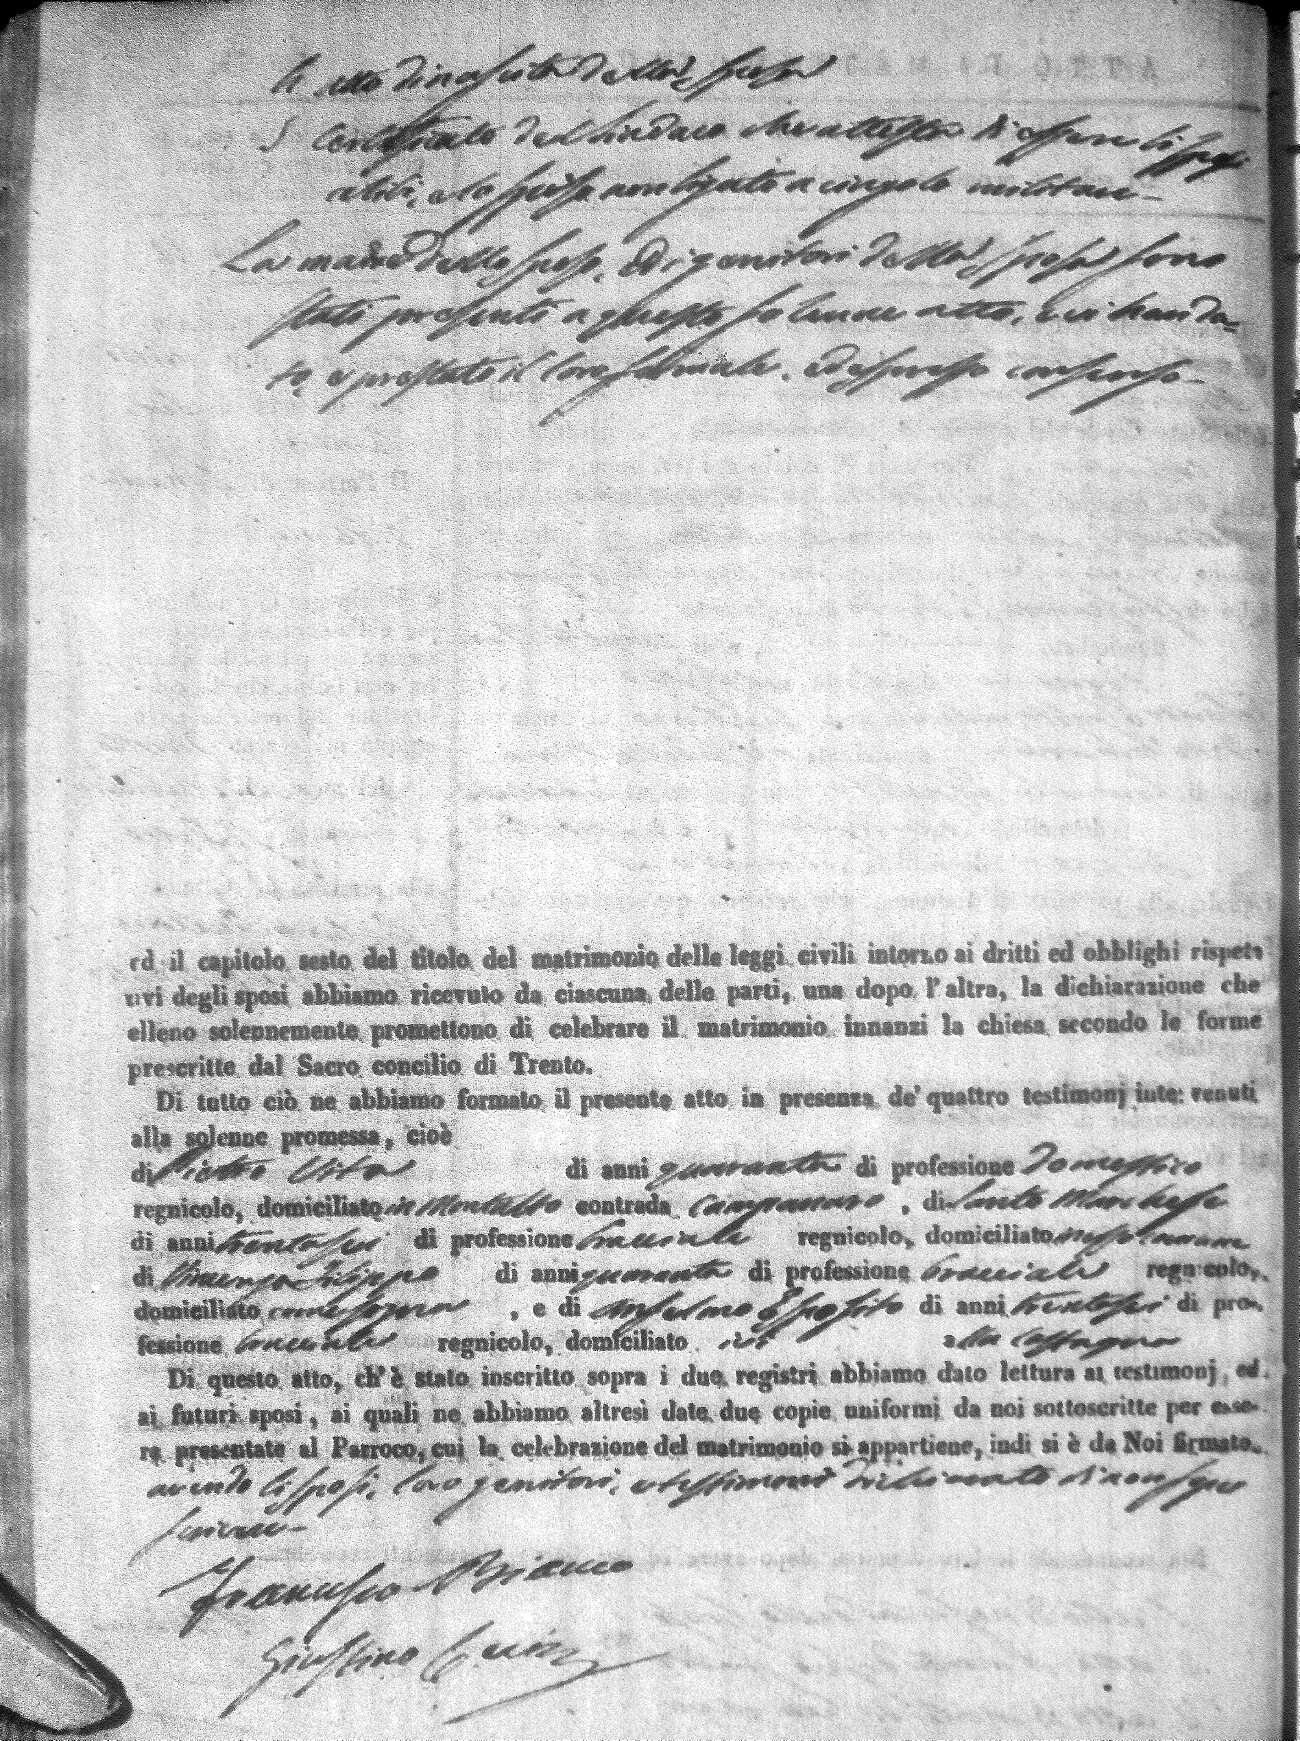 atto di nascita della sposa
5 Certificato del Sindaco che attesta di essere li sposi
celibi, e lo sposo non ligato a cingolo militare -
La madre dello sposo, ed i genitori della sposa sono
stati presenti a questo solenne atto, e vi han da=
to, e prestato il loro formale, ed espresso consenso -
ed il capitolo sesto del titolo del matrimonio delle leggi civili intorno ai dritti ed obblighi rispet
tivi degli sposi abbiamo ricevuto da ciascuna delle parti, una dopo l'altra, la dichiarazione che
elleno solennemente promettono di celebrare il matrimonio innanzi la chiesa secondo le forme
prescritte dal Sacro concilio di Trento.
Di tutto ciò ne abbiamo formato il presente atto in presenza de' quattro testimonj intervenuti
alla solenne promessa, cioè
di Pietro Vita di anni quaranta di professione Domestico
regnicolo, domiciliato in Montalto contrada Campanaro, di Santo Marchese
di anni trentasei di professione bracciale regnicolo, domiciliato
di Vincenzo Filippo di anni quaranta di professione bracciale regnicolo,
domiciliato come sopra, e di Anselmo Esposito di anni trentasei di pro-
fessione bracciale regnicolo, domiciliato ivi alla
Di questo atto, ch'è stato inscritto sopra i due registri abbiamo dato lettura ai testimonj, ed
ai futuri sposi, ai quali ne abbiamo altresì date due copie uniformi da noi sottoscritte per esse-
re presentate al Parroco, cui la celebrazione del matrimonio si appartiene, indi si è da Noi firmato,
avendo li sposi, loro genitori, e testimoni dichiarato di non saper
scrivere -
Francesco Bianco
Giustino